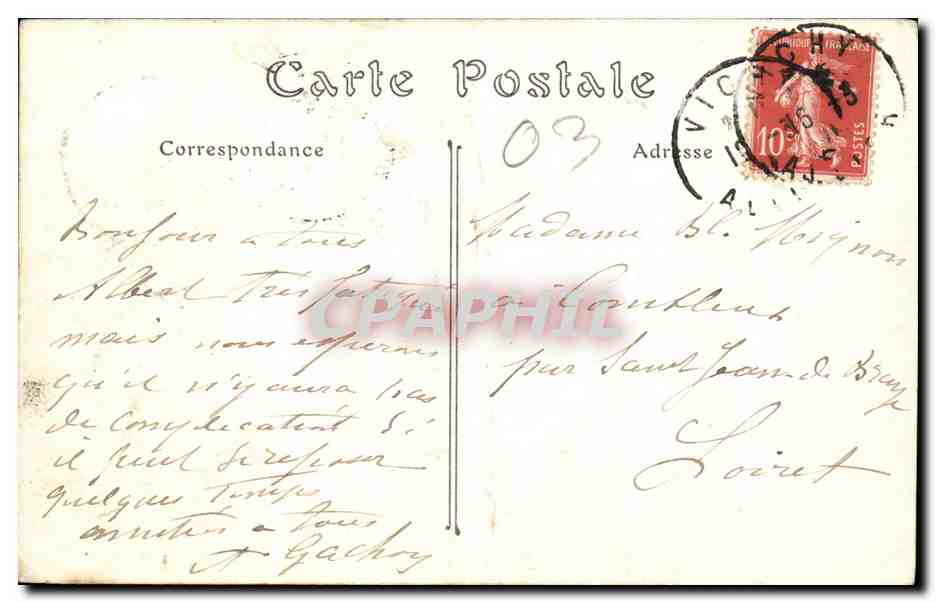 Carte Postale
03
Correspondance
Adresse
REPUBLIQUE FRANCAISE
10c
POSTES
VICHY
ALLIER
Bonjour a tous
Albert Très fatigué
mais nous esperons
qu'il n'y aura pas
de complication Si
il peut se reposer
quelques temps
amitiés a tous
A Gachoy
Madame Bl. Mignon
a Combleux
par Saint Jean de Braye
Loiret
CPAPHIL